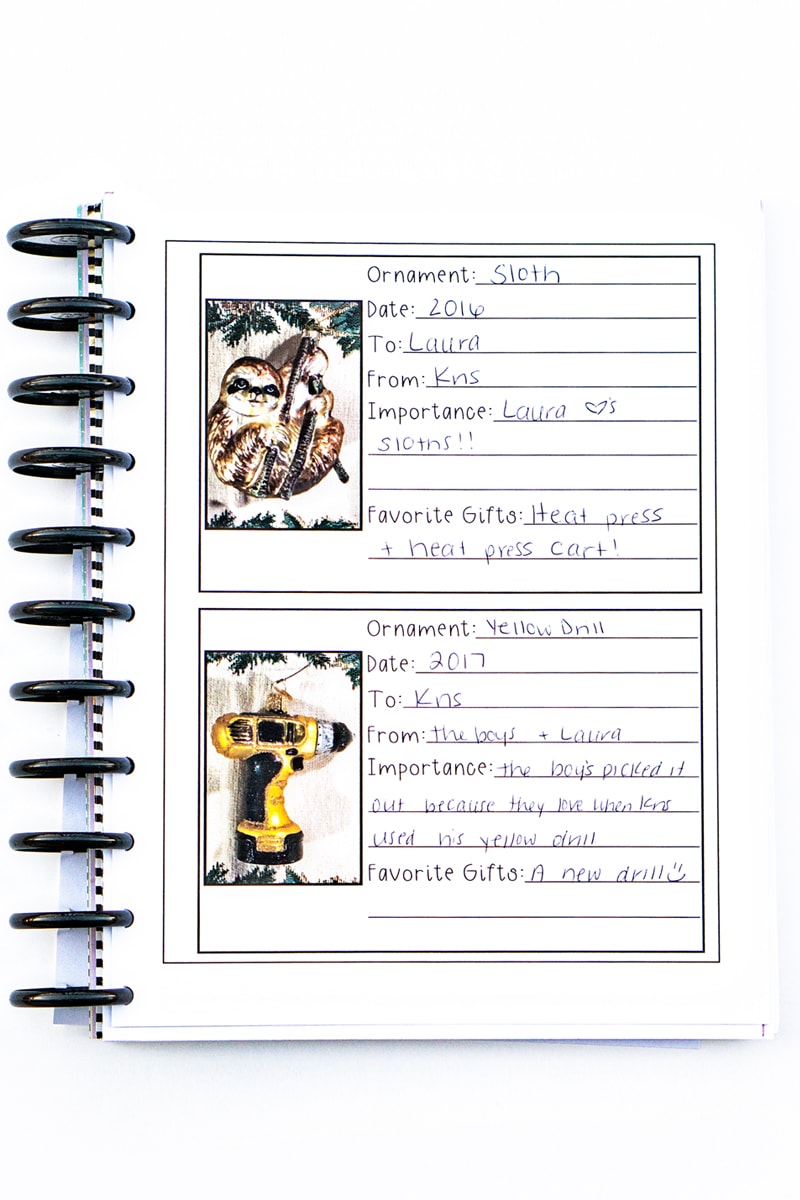 Ornament: Sloth
Date: 2016
To: Laura
From: Kris
Importance: Laura ♡'s
sloths!!
Favorite Gifts: Heat press
+ heat press cart!
Ornament: Yellow Drill
Date: 2017
To: Kris
From: the boys + Laura
Importance: the boys picked it
out because they love when Kris
used his yellow drill
Favorite Gifts: A new drill